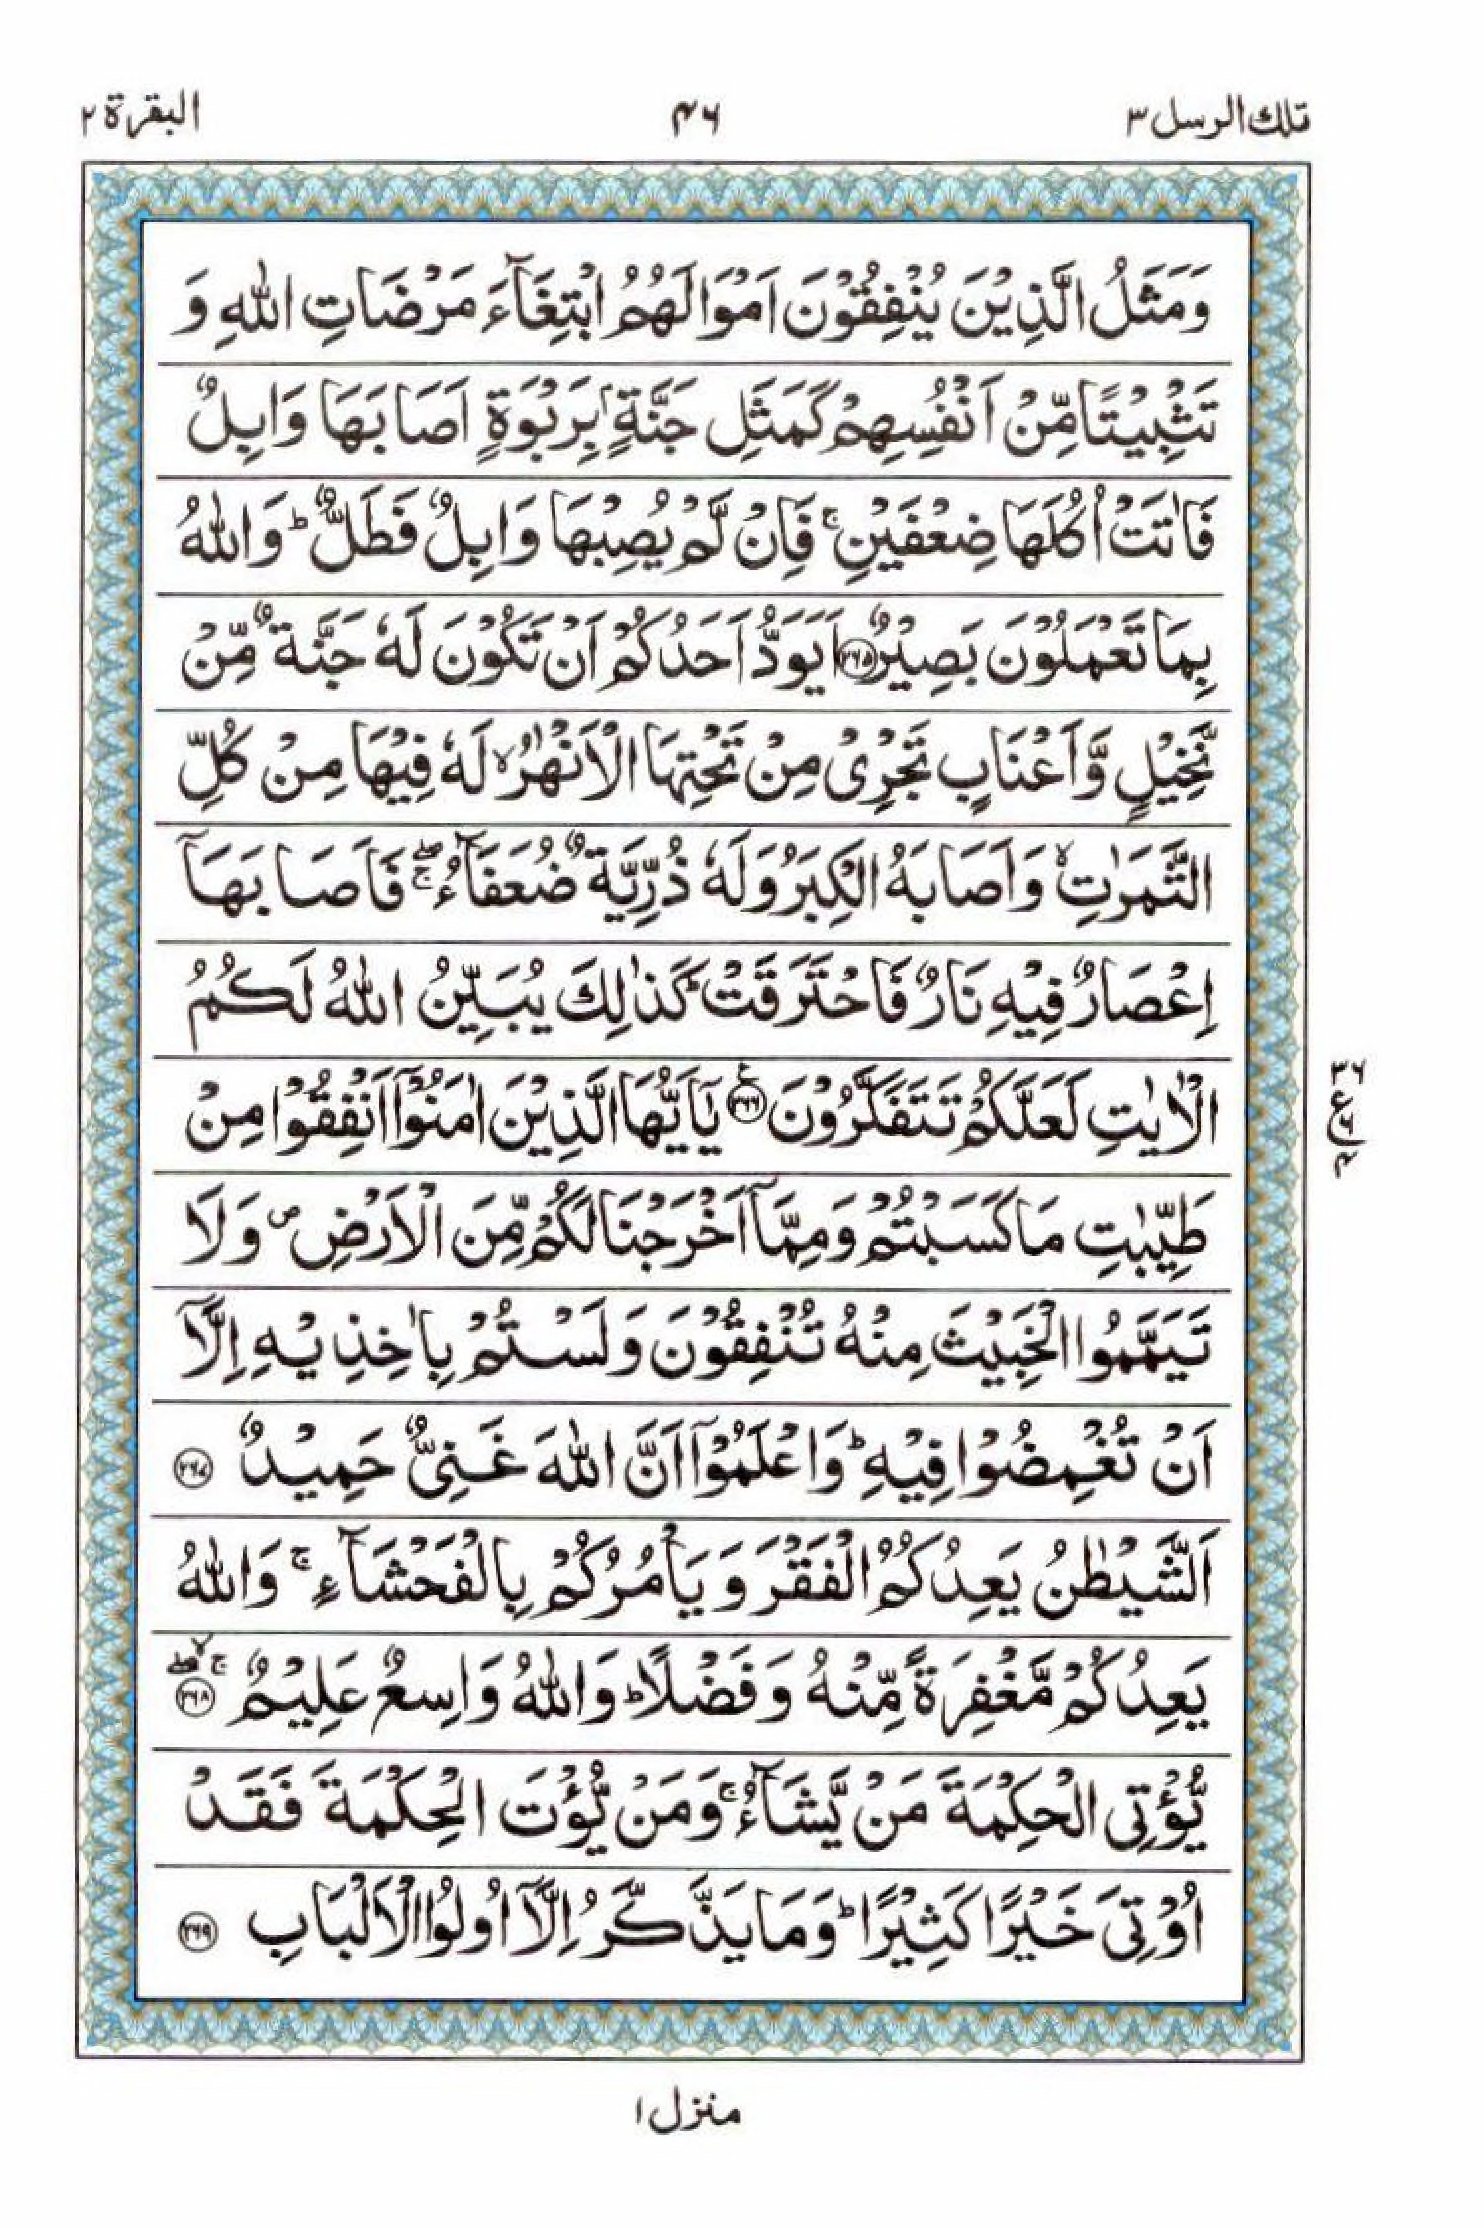 تلك الرسل ٣
٤٦
البقرة ٢
وَمَثَلُ الَّذِيْنَ يُنْفِقُوْنَ اَمْوَالَهُمُ ابْتِغَآءَ مَرْضَاتِ اللّٰهِ وَ
تَثْبِيْتًا مِّنْ اَنْفُسِهِمْ كَمَثَلِ جَنَّةٍۭ بِرَبْوَةٍ اَصَابَهَا وَابِلٌ
فَاٰتَتْ اُكُلَهَا ضِعْفَيْنِ ۚ فَاِنْ لَّمْ يُصِبْهَا وَابِلٌ فَطَلٌّ ؕ وَاللّٰهُ
بِمَا تَعْمَلُوْنَ بَصِيْرٌ ۝۲۶۵ اَيَوَدُّ اَحَدُكُمْ اَنْ تَكُوْنَ لَهٗ جَنَّةٌ مِّنْ
نَّخِيْلٍ وَّاَعْنَابٍ تَجْرِيْ مِنْ تَحْتِهَا الْاَنْهٰرُ ۙ لَهٗ فِيْهَا مِنْ كُلِّ
الثَّمَرٰتِ ۙ وَاَصَابَهُ الْكِبَرُ وَلَهٗ ذُرِّيَّةٌ ضُعَفَآءُ ۖۚ فَاَصَابَهَآ
اِعْصَارٌ فِيْهِ نَارٌ فَاحْتَرَقَتْ ؕ كَذٰلِكَ يُبَيِّنُ اللّٰهُ لَكُمُ
الْاٰيٰتِ لَعَلَّكُمْ تَتَفَكَّرُوْنَ ۝۲۶۶ ع يٰٓاَيُّهَا الَّذِيْنَ اٰمَنُوْٓا اَنْفِقُوْا مِنْ
٣٦
ع
٦
٤
طَيِّبٰتِ مَا كَسَبْتُمْ وَمِمَّآ اَخْرَجْنَا لَكُمْ مِّنَ الْاَرْضِ ۪ وَلَا
تَيَمَّمُوا الْخَبِيْثَ مِنْهُ تُنْفِقُوْنَ وَلَسْتُمْ بِاٰخِذِيْهِ اِلَّآ
اَنْ تُغْمِضُوْا فِيْهِ ؕ وَاعْلَمُوْٓا اَنَّ اللّٰهَ غَنِيٌّ حَمِيْدٌ ۝۲۶۷
اَلشَّيْطٰنُ يَعِدُكُمُ الْفَقْرَ وَيَاْمُرُكُمْ بِالْفَحْشَآءِ ۚ وَاللّٰهُ
يَعِدُكُمْ مَّغْفِرَةً مِّنْهُ وَفَضْلًا ؕ وَاللّٰهُ وَاسِعٌ عَلِيْمٌ ۝۲۶۸ ۖۚ ۙ
يُّؤْتِى الْحِكْمَةَ مَنْ يَّشَآءُ ۚ وَمَنْ يُّؤْتَ الْحِكْمَةَ فَقَدْ
اُوْتِيَ خَيْرًا كَثِيْرًا ؕ وَمَا يَذَّكَّرُ اِلَّآ اُولُوا الْاَلْبَابِ ۝۲۶۹
منزل ١